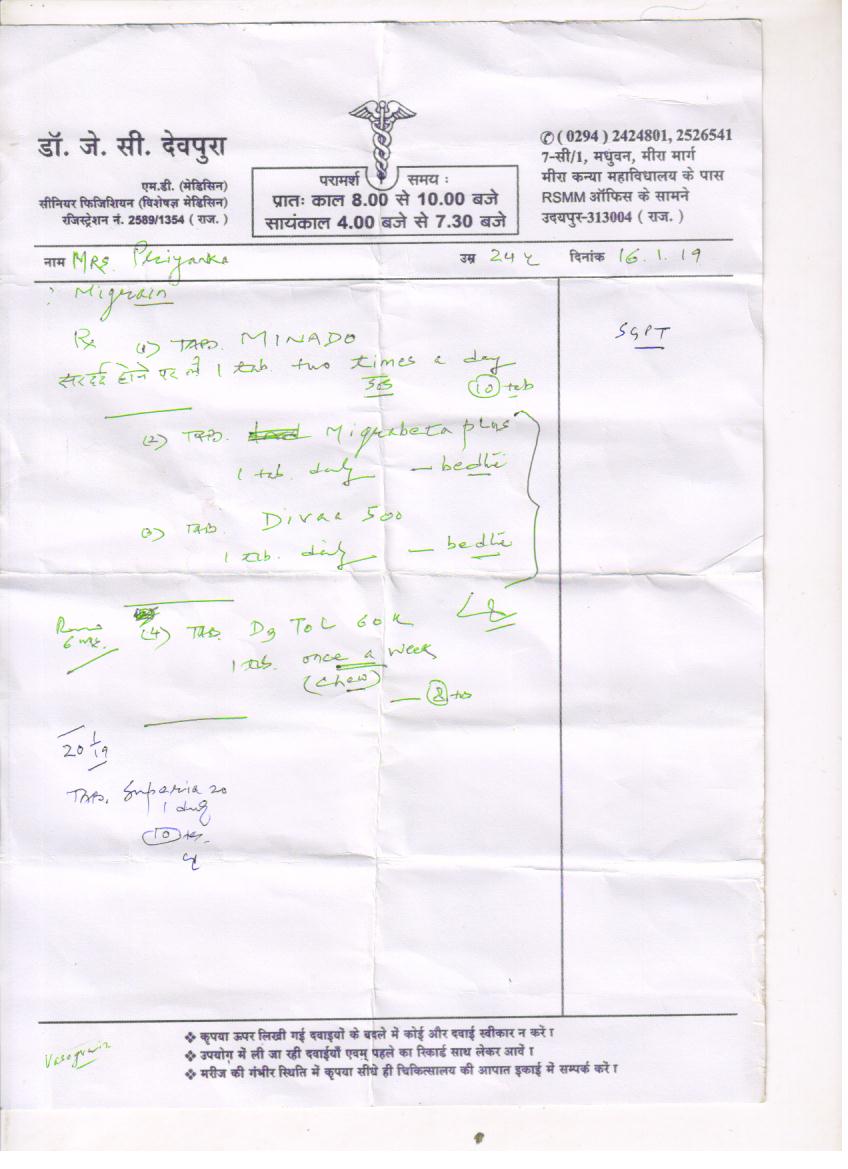 डॉ. जे. सी. देवपुरा
एम.डी. (मेडिसिन)
सीनियर फिजिशियन (विशेषज्ञ मेडिसिन)
रजिस्ट्रेशन नं. 2589/1354 ( राज. )
परामर्श समय :
प्रातः काल 8.00 से 10.00 बजे
सायंकाल 4.00 बजे से 7.30 बजे
✆ ( 0294 ) 2424801, 2526541
7-सी/1, मधुवन, मीरा मार्ग
मीरा कन्या महाविधालय के पास
RSMM ऑफिस के सामने
उदयपुर-313004 ( राज. )
नाम MRS. Priyanka उम्र 24 y दिनांक 16.1.19
: Migrain
SGPT
Rx (1) TAB. MINADO
सरदर्द होने पर लें 1 tab. two times a day
SOS 10 tab
(2) TAB. Migrabeta plus
1 tab. daily — bedtie
(3) TAB. Divaa 500
1 tab. daily — bedtie
(4) TAB. D3 TOL 60K
1 tab. once a week
(chew)
— 8 tab
20/1/19
TAB. 20
1 daily
10 tab.
❖ कृपया ऊपर लिखी गई दवाइयों के बदले में कोई और दवाई स्वीकार न करें ।
❖ उपयोग में ली जा रही दवाईयाँ एवम् पहले का रिकार्ड साथ लेकर आवें ।
❖ मरीज की गंभीर स्थिति में कृपया सीधे ही चिकित्सालय की आपात इकाई में सम्पर्क करें ।